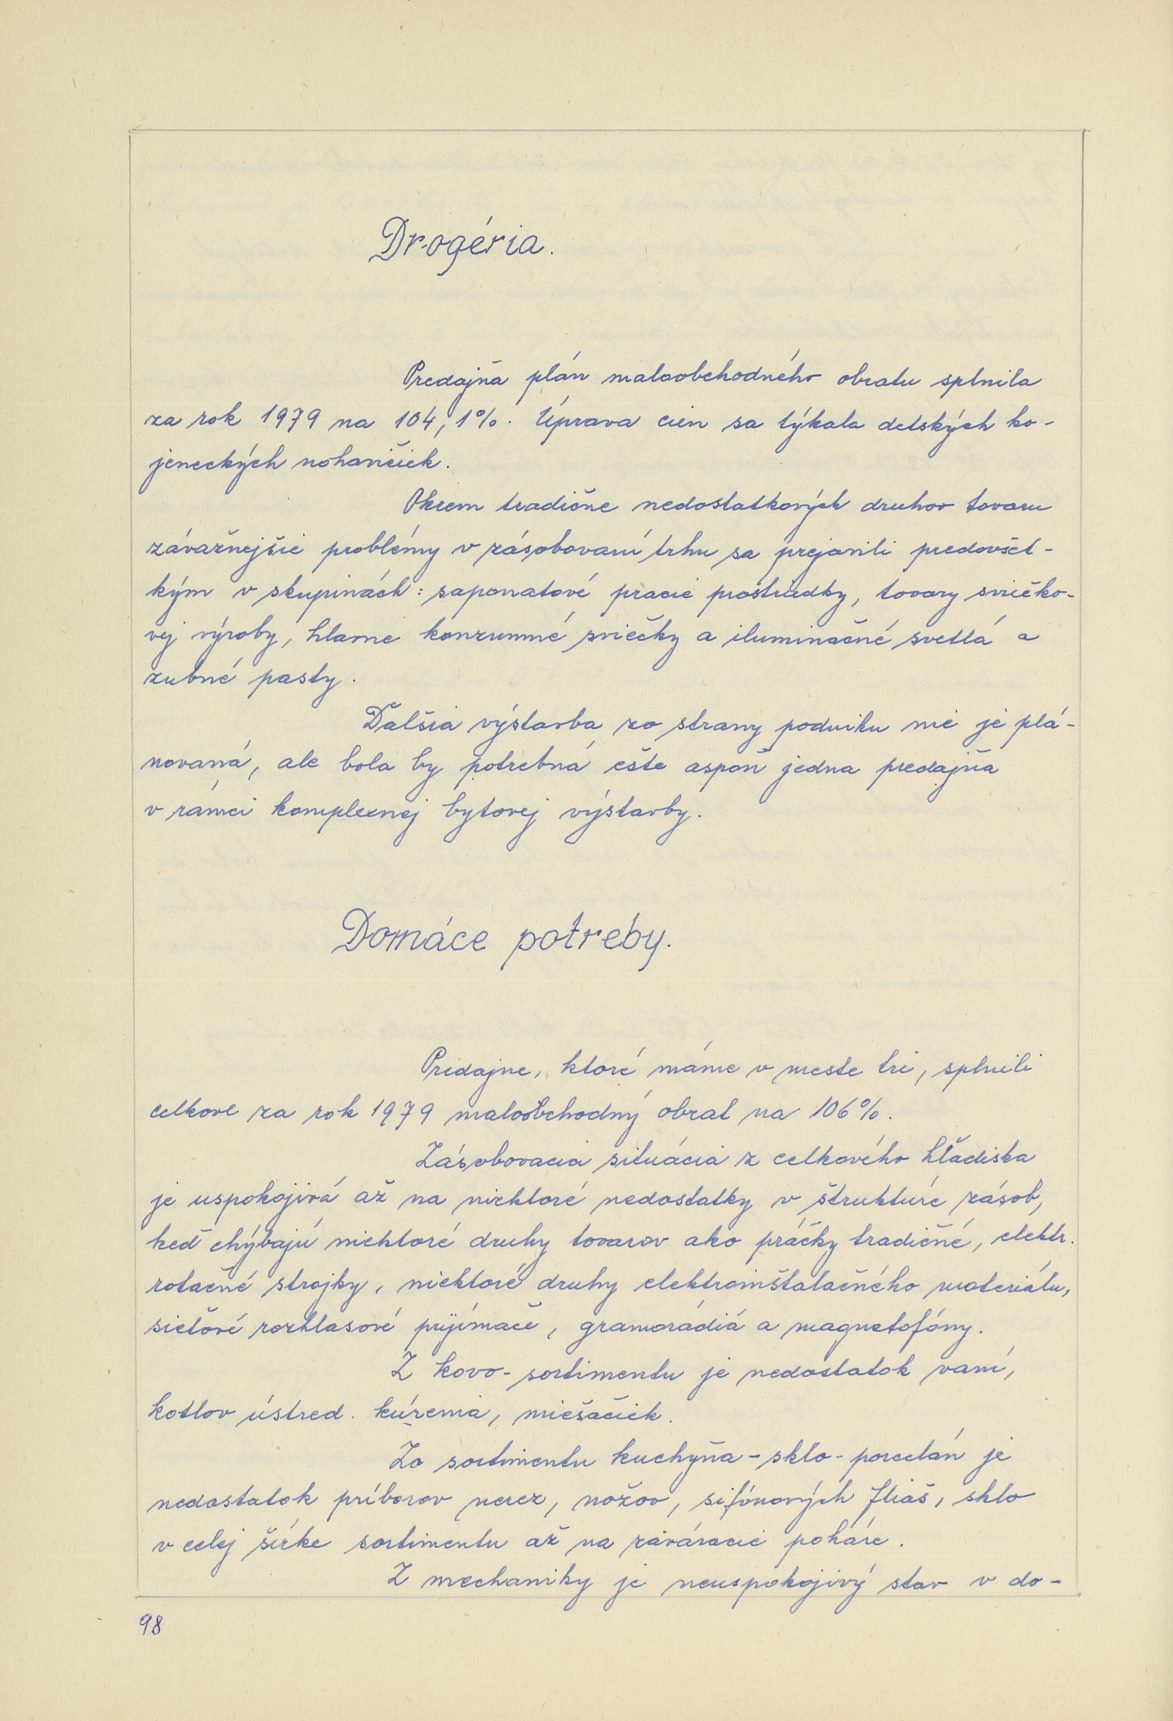 Drogéria.
Predajňa plán maloobchodného obratu splnila
za rok 1979 na 104,1%. Úprava cien sa týkala detských ko-
jeneckých nohavičiek.
Okrem tradične nedostatkových druhov tovaru
závažnejšie problémy v zásobovaní trhu sa prejavili predovšet-
kým v skupinách: saponatové pracie prostriedky, tovary sviečko-
vej výroby, hlavne konzumné sviečky a iluminačné svetlá a
zubné pasty.
Ďalšia výstavba zo strany podniku nie je plá-
novaná, ale bola by potrebná ešte aspoň jedna predajňa
v rámci komplexnej bytovej výstavby.
Domáce potreby.
Predajne, ktoré máme v meste tri, splnili
celkove za rok 1979 maloobchodný obrat na 106%.
Zásobovacia situácia z celkového hľadiska
je uspokojivá až na niektoré nedostatky v štruktúre zásob,
keď chýbajú niektoré druhy tovarov ako práčky tradičné, elektr.
rotačné strojky, niektoré druhy elektroinštalačného materiálu,
sieťové rozhlasové prijímače, gramorádiá a magnetofóny.
Z kovo-sortimentu je nedostatok vaní,
kotlov ústred. kúrenia, miešačiek.
Zo sortimentu kuchyňa-sklo-porcelán je
nedostatok príborov nerez, nožov, sifónových fliaš, sklo
v celej šírke sortimentu až na zaváracie poháre.
Z mechaniky je neuspokojivý stav v do-
98